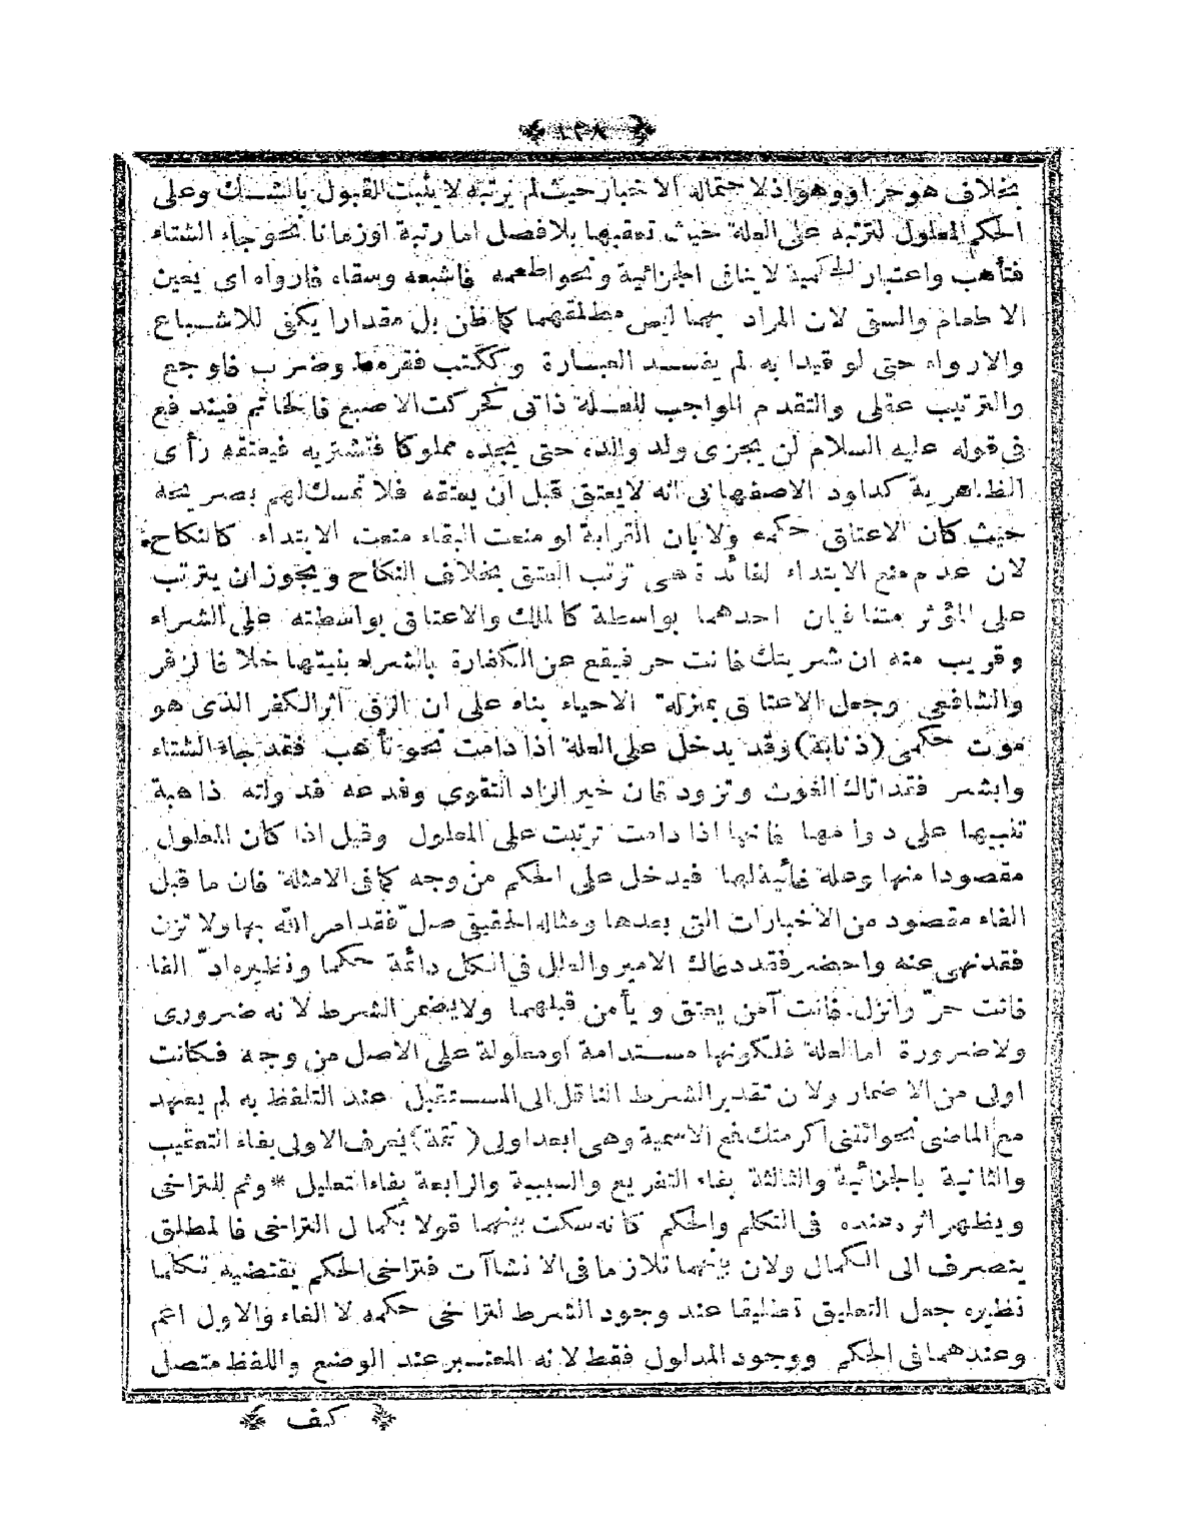 ١٣٨
بخلاف هو حر او وهو اذ لاحتماله الاخبار حيث لم يرتبه لا يثبت القبول بالشك وعلى
الحكم المعلول لترتبه على العلة حيث تعقبها بلا فصل اما رتبة او زمانا نحو جاء الشتاء
فتأهب واعتبار الحكمية لا ينافى الجزائية ونحو اطعمه فاشبعه وسقاه فارواه اى بعين
الاطعام والسقى لان المراد بهما ليس مطلقهما كما ظن بل مقدارا يكفى للاشباع
والارواء حتى لو قيدا به لم يفسد العبارة وككتب فقرمط وضرب فاوجع
والترتيب عقلى والتقدم الواجب للعلة ذاتى كحركت الاصبع فالخاتم فيندفع
فى قوله عليه السلام لن يجزى ولد والده حتى يجده مملوكا فتشتريه فيعتقه رأى
الظاهرية كداود الاصفهانى انه لا يعتق قبل ان يعتقه فلا تمسك لهم بصريحه
حيث كان الاعتاق حكمه ولا بان القرابة لو منعت البقاء منعت الابتداء كالنكاح
لان عدم منع الابتداء لفائدة هى ترتب العتق بخلاف النكاح ويجوز ان يترتب
على المؤثر متنافيان احدهما بواسطة كالملك والاعتاق بواسطته على الشراء
وقريب منه ان شريتك فانت حر فيقع عن الكفارة بالشراء بنيتها خلافا لزفر
والشافعى وجعل الاعتاق بمنزلة الاحياء بناء على ان الرق اثر الكفر الذى هو
موت حكمى (ذنابة) وقد يدخل على العلة اذا دامت نحو تأهب فقد جاء الشتاء
وابشر فقد اتاك الغوث وتزود فان خير الزاد التقوى وفدعه فدولته ذاهبة
تنبيها على دوامها فانها اذا دامت ترتبت على المعلول وقيل اذا كان المعلول
مقصودا منها وعلة غائية لها فيدخل على الحكم من وجه كما فى الامثلة فان ما قبل
الفاء مقصود من الاخبارات التى بعدها ومثاله الحقيقى صلّ فقد امر الله بها ولا تزن
فقد نهى عنه واحضر فقد دعاك الامير والعلل فى الكل دائمة حكما ونظيره ادّ الفا
فانت حرّ وانزل فانت آمن يعتق ويأمن قبلهما ولا يضمر الشرط لانه ضرورى
ولا ضرورة اما العلة فلكونها مستدامة او معلولة على الاصل من وجه فكانت
اولى من الاضمار ولان تقدير الشرط الناقل الى المستقبل عند التلفظ به لم يعهد
مع الماضى نحو ائتنى اكرمتك فمع الاسمية وهى ابعد اولى (تمة) يعرف الاولى بفاء التعقيب
والثانية بالجزائية والثالثة بفاء التفريع والسببية والرابعة بفاء التعليل * وثم للتراخى
ويظهر اثره عنده فى التكلم والحكم كانه سكت بينهما قولا بكمال التراخى فالمطلق
ينصرف الى الكمال ولان بينهما تلازما فى الانشاآت فتراخى الحكم يقتضيه تكلما
نظيره جعل التعليق تطليقا عند وجود الشرط لتراخى حكمه لا الفاء والاول اعم
وعندهما فى الحكم ووجود المدلول فقط لانه المعتبر عند الوضع واللفظ متصل
كيف